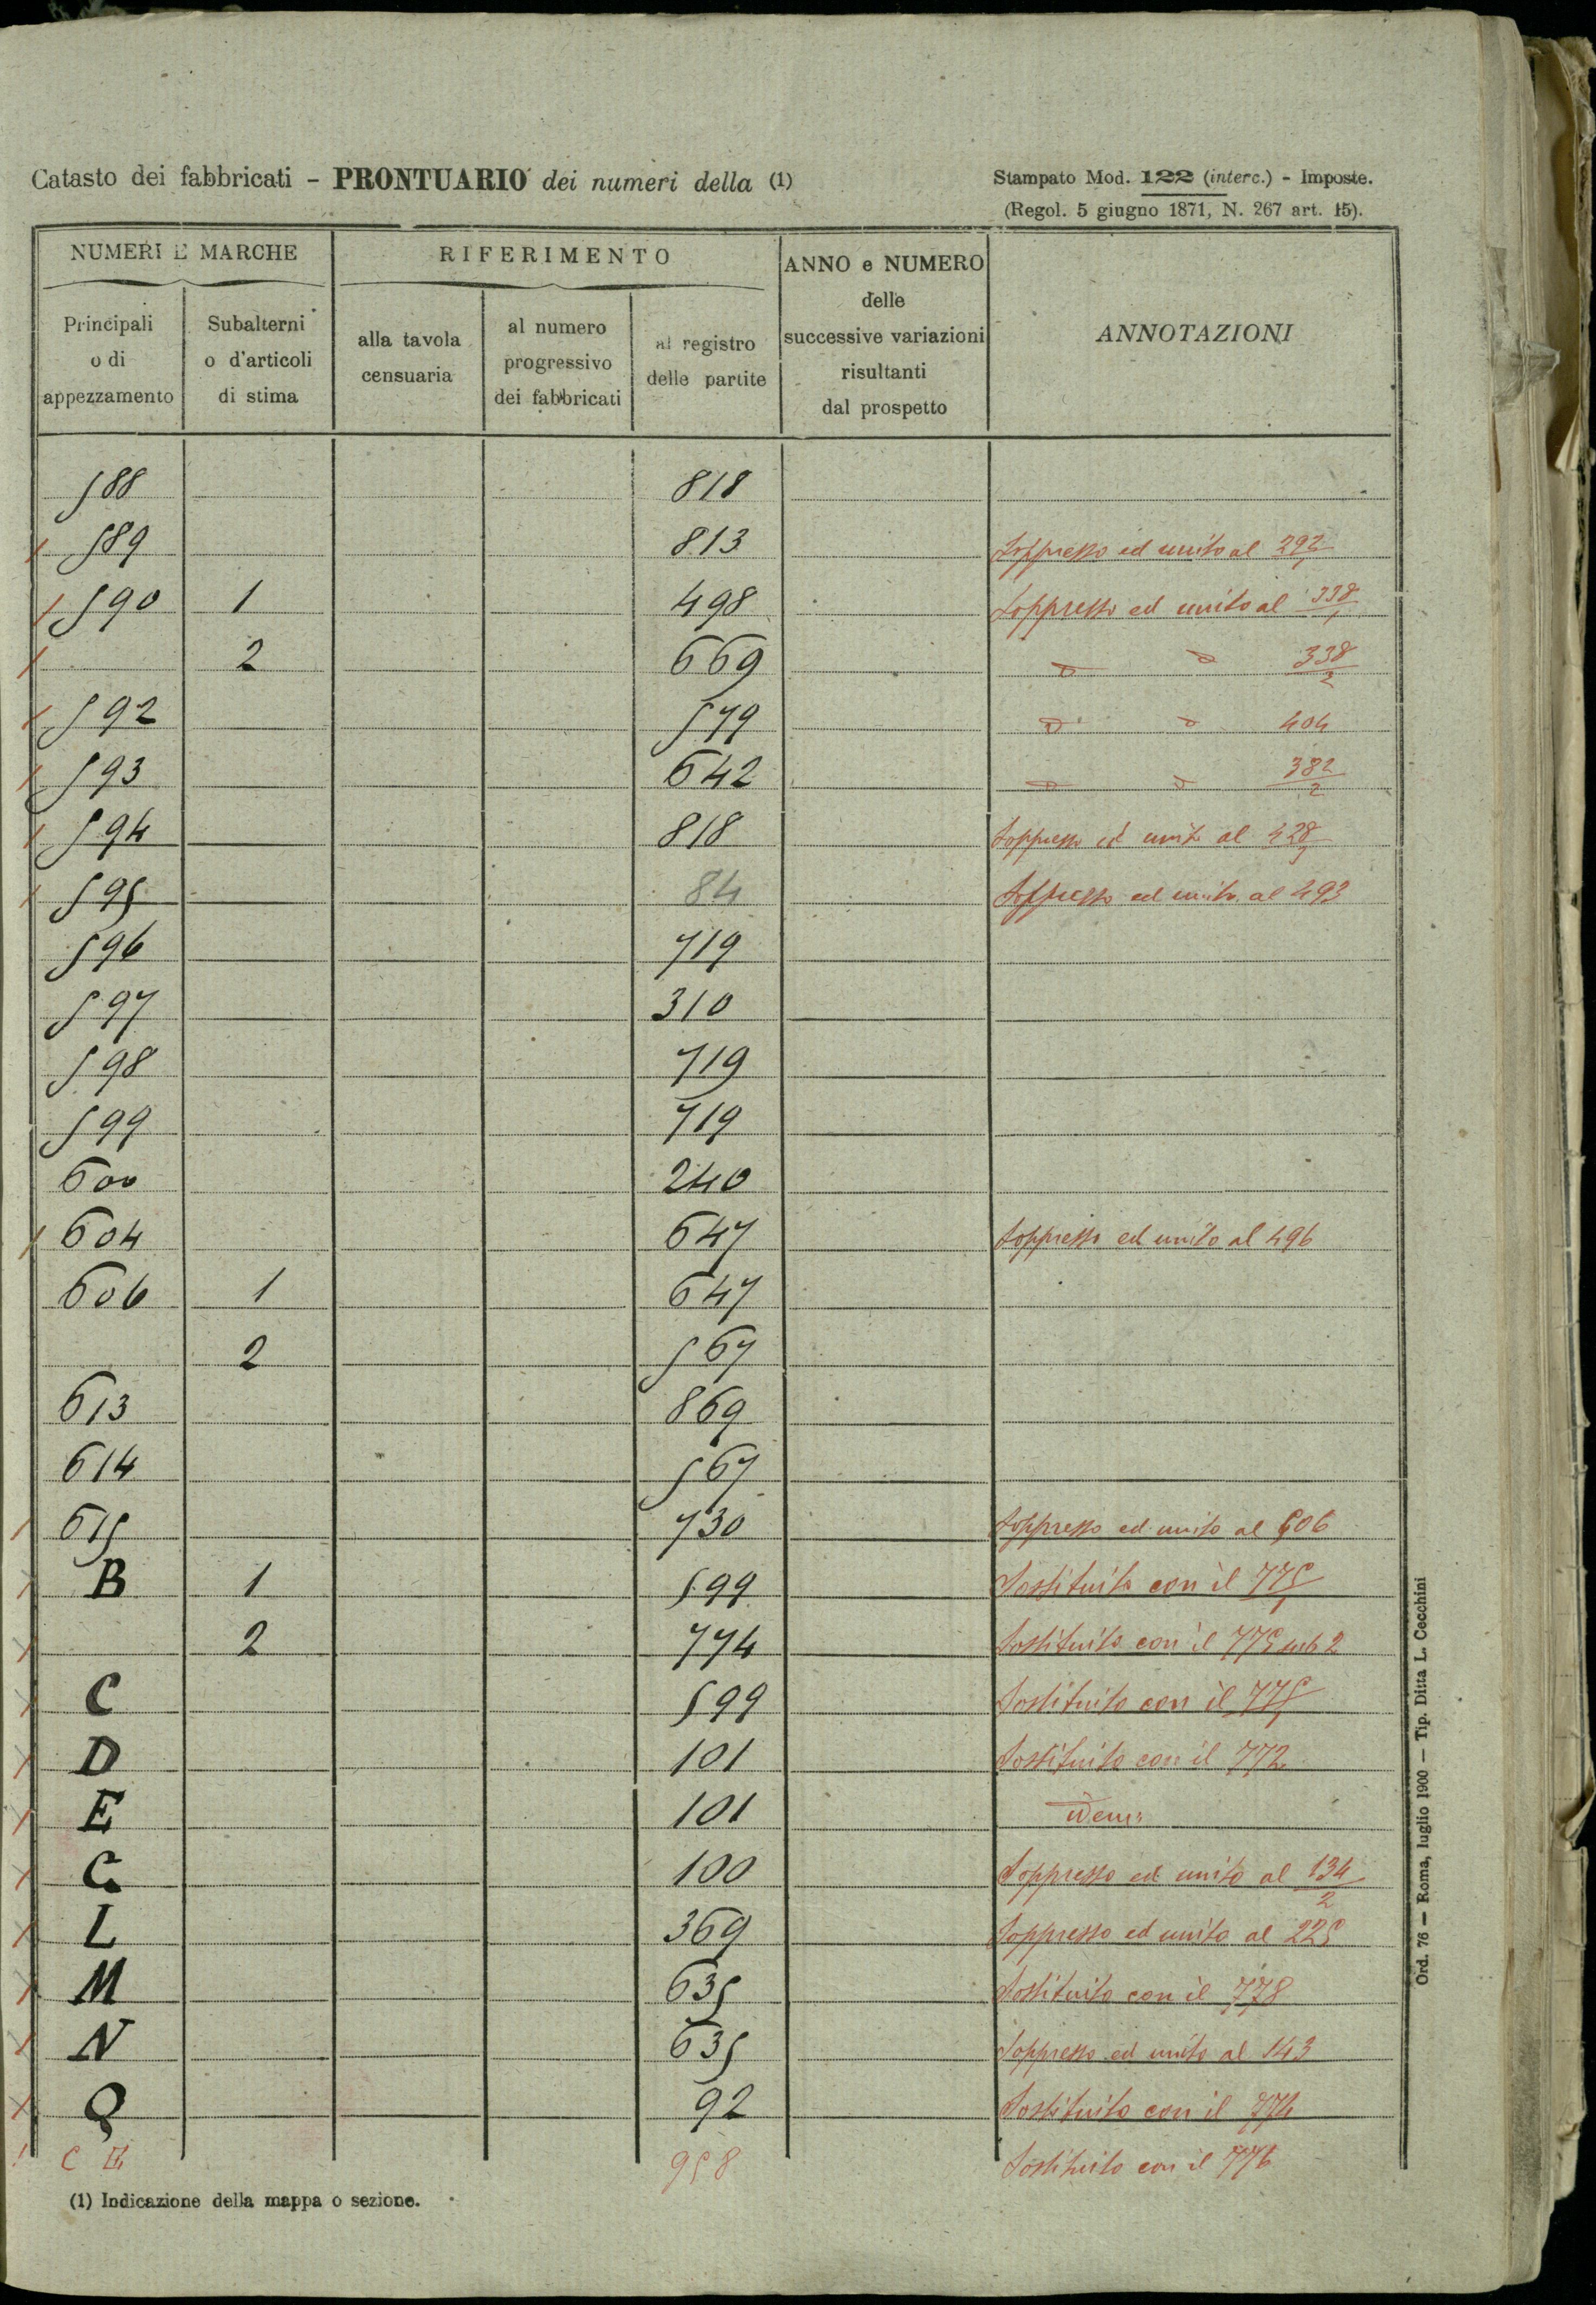 Catasto dei fabbricati - PRONTUARIO dei numeri della (1)
Stampato Mod. 122 (interc.) - Imposte.
(Regol. 5 giugno 1871, N. 267 art. 15).
NUMERI E MARCHE
RIFERIMENTO
ANNO e NUMERO
delle
successive variazioni
risultanti
dal prospetto
ANNOTAZIONI
Principali
o di
appezzamento
Subalterni
o d'articoli
di stima
alla tavola
censuaria
al numero
progressivo
dei fabbricati
al registro
delle partite
588 818
589 813 Soppresso ed unito al 292
590 1 498 Soppresso ed unito al 338/1
2 669 " " 338/2
592 579 " " 404
593 642 " " 382/2
594 818 Soppresso ed unito al 428
595 84 Soppresso ed unito al 493
596 719
597 310
598 719
599 719
600 240
604 647 Soppresso ed unito al 496
606 1 647
2 567
613 869
614 567
615 730 Soppresso ed unito al 606
B 1 599 Sostituito con il 775/1
2 774 Sostituito con il 775 sub 2
C 599 Sostituito con il 775/1
D 101 Sostituito con il 772
E 101 idem
G 100 Soppresso ed unito al 134/2
L 369 Soppresso ed unito al 225
M 635 Sostituito con il 778
N 635 Soppresso ed unito al 143
Q 92 Sostituito con il 774
C E 958 Sostituito con il 776
(1) Indicazione della mappa o sezione.
Ord. 76 — Roma, luglio 1900 — Tip. Ditta L. Cecchini